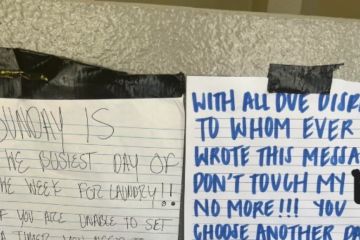 SUNDAY IS
THE BUSIEST DAY OF
THE WEEK FOR LAUNDRY!!
IF YOU ARE UNABLE TO SET
A TIMER YOU NEED TO
WITH ALL DUE DISR
TO WHOM EVER
WROTE THIS MESSA
DON'T TOUCH MY
NO MORE!!! YOU
CHOOSE ANOTHER DA